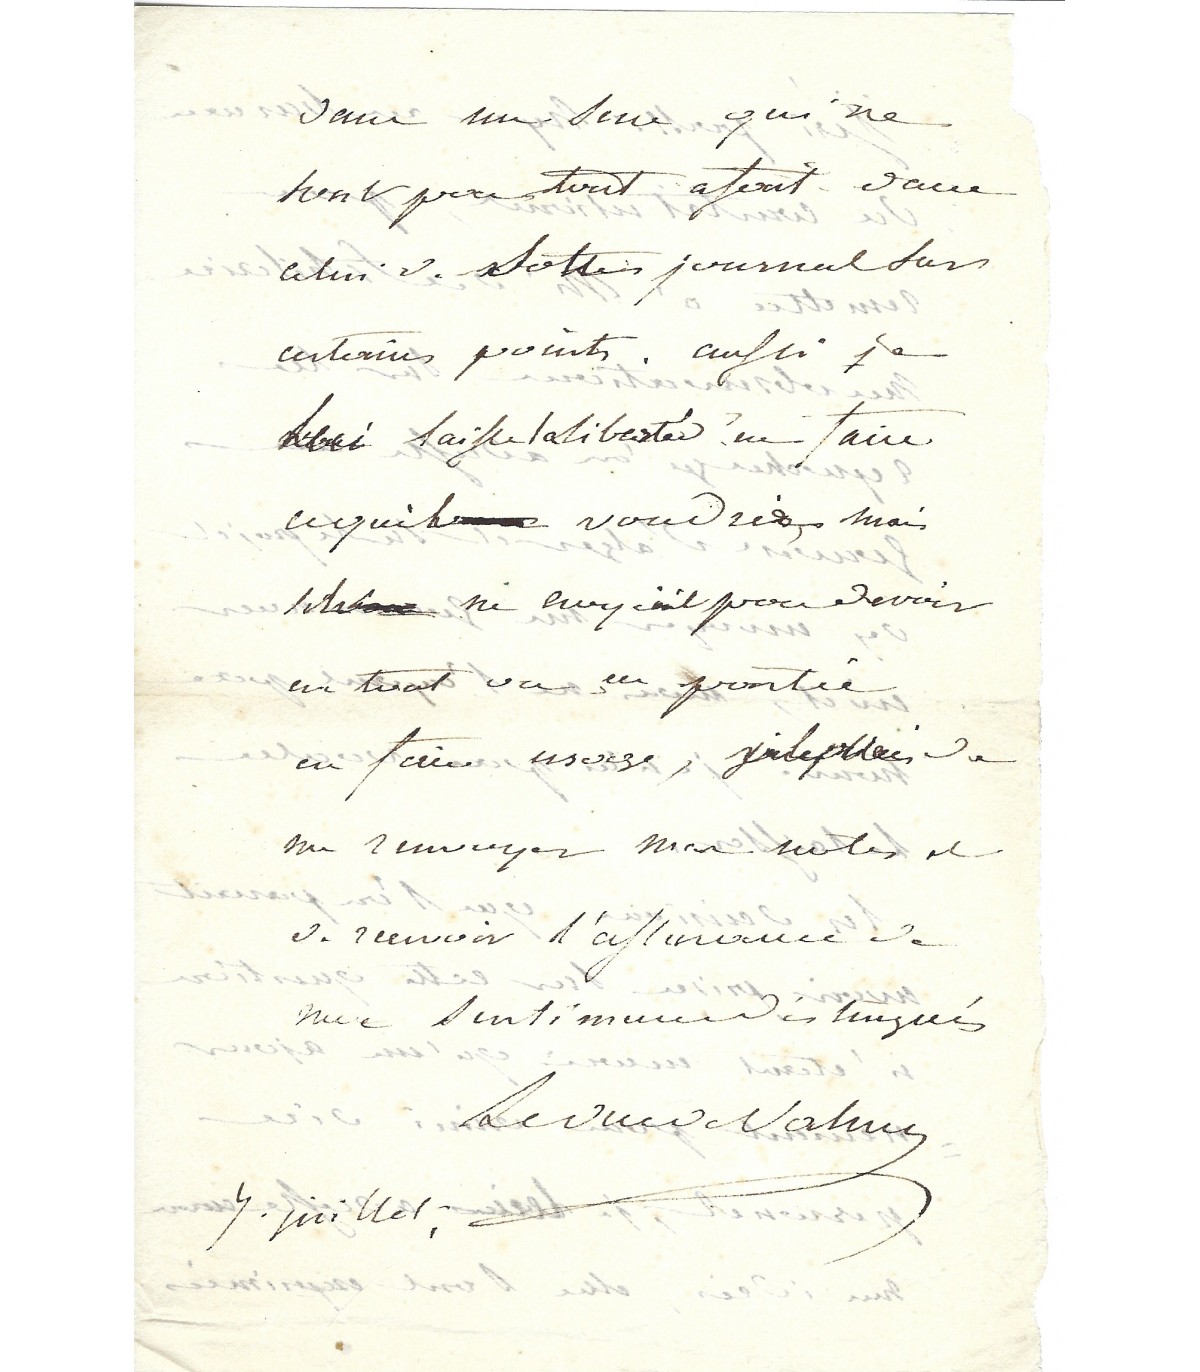 dans un sens qui ne
sont pas tout afait dans
celui de votre journal sur
certains points. aussi je
lui laisse la liberté d'en faire
ce qu'il voudra, mais
ne croyait pas devoir
en tout ou en partie
en faire usage, je le prie de
me renvoyer mes notes et
de recevoir l'assurance de
mes sentimens distingués
Le duc de Valmy
7. juillet